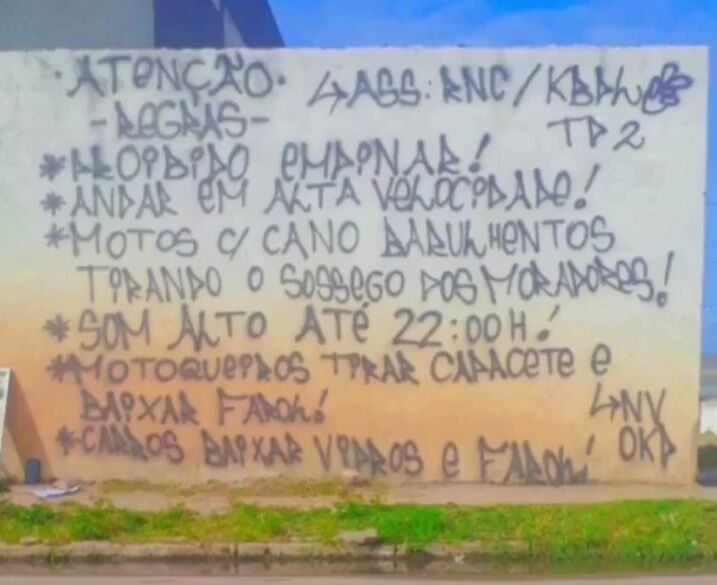 ·ATENÇÃO·
↳ASS: RNC/KBDL
-REGRAS-
TD2
*PROIBIDO EMPINAR!
*ANDAR EM ALTA VELOCIDADE!
*MOTOS C/ CANO BARULHENTOS
TIRANDO O SOSSEGO DOS MORADORES!
*SOM ALTO ATÉ 22:00H!
*MOTOQUEIROS TIRAR CAPACETE E
BAIXAR FAROL!
↳NV
*CARROS BAIXAR VIDROS E FAROL!
OKD